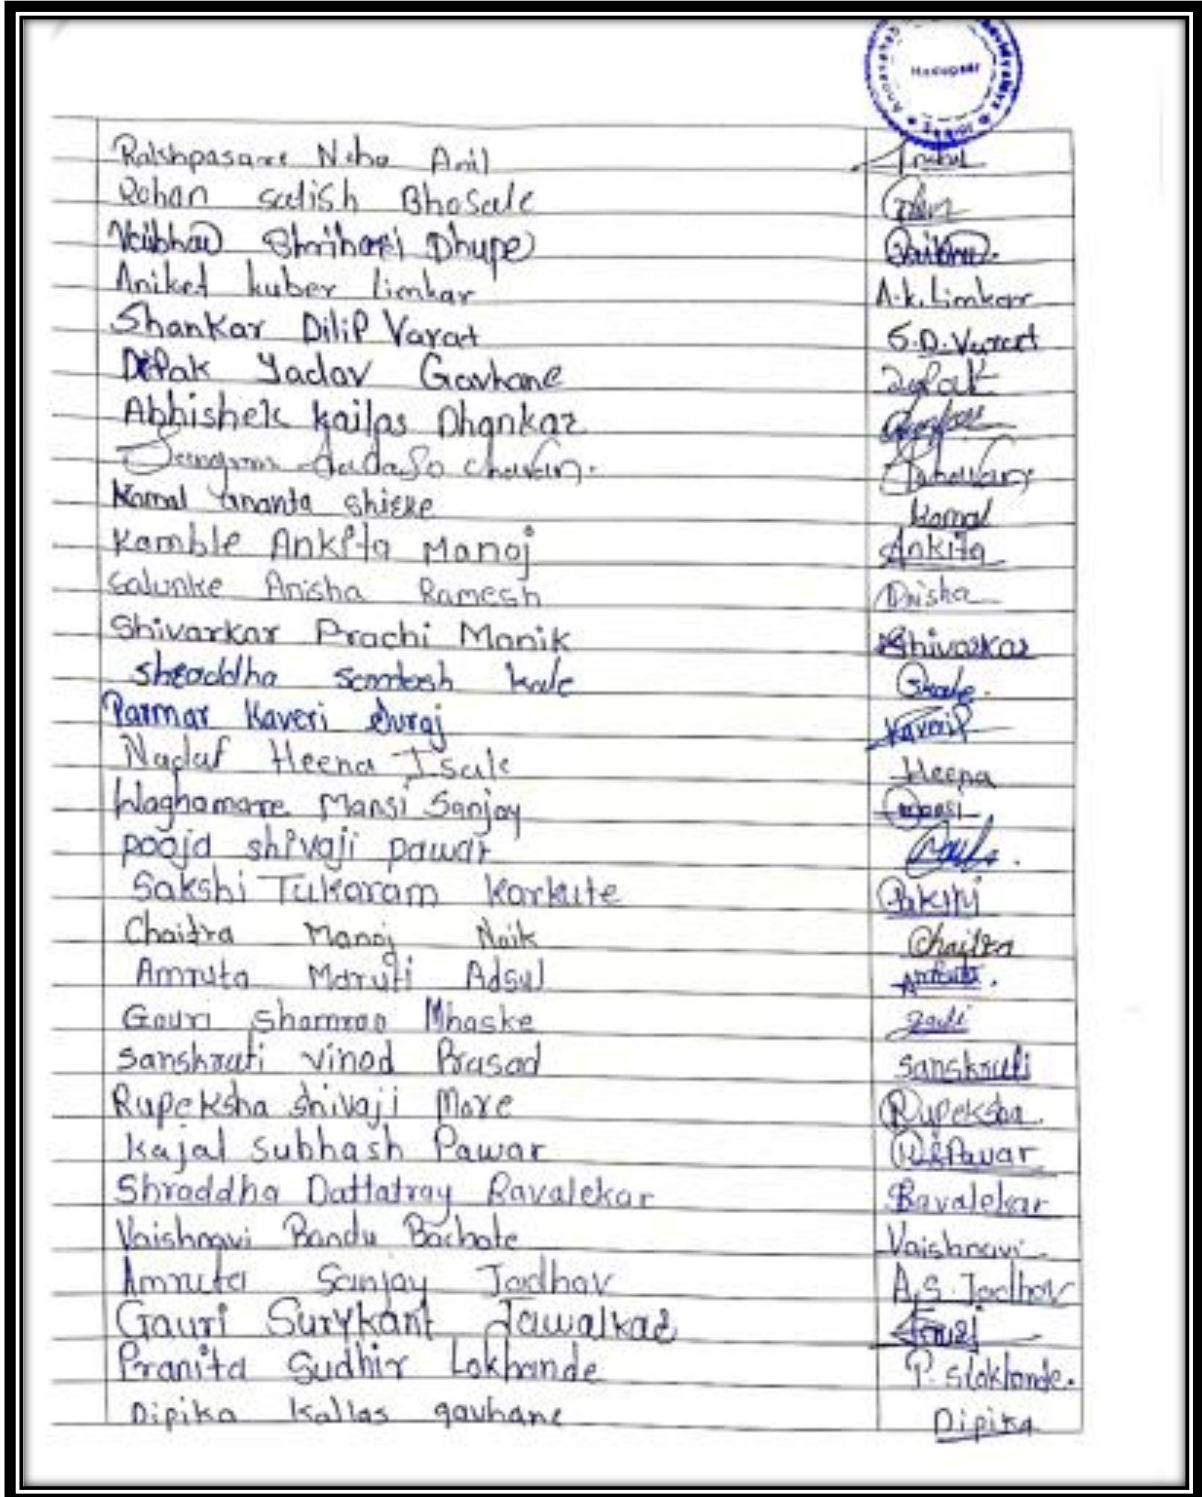 Hadapsar
Rakshpasare Neha Anil
Rohan satish Bhosale
Vaibhav Shrihari Dhupe Vaibhav.
Aniket kuber limkar A.k.Limkar
Shankar Dilip Varat S.D.Varat
Dipak Yadav Gavhane
Abhishek kailas Dhankar
dadaso chavan.
Komal ananta shirke Komal
Kamble Ankita Manoj Ankita
Salunke Anisha Ramesh Anisha
Shivarkar Prachi Manik Shivarkar
shraddha santosh kale Skale.
Parmar Kaveri Suraj Kaveri
Nadaf Heena Isak Heena
Waghamare Mansi Sanjay Mansi
pooja shivaji pawar
Sakshi Tukaram Karkute Sakshi
Chaitra Manoj Naik Chaitra
Amruta Maruti Adsul Amruta.
Gauri Shamrao Mhaske Gauri
Sanskruti Vinod Prasad Sanskruti
Rupeksha Shivaji More Rupeksha.
Kajal Subhash Pawar K.S.Pawar
Shraddha Dattatray Ravalekar Ravalekar
Vaishnavi Bandu Bachate Vaishnavi.
Amruta Sanjay Jadhav A.S.Jadhav
Gauri Surykant Jawalkar Gauri
Pranita Sudhir Lokhande P.S.Lokhande.
Dipika Kailas gavhane Dipika